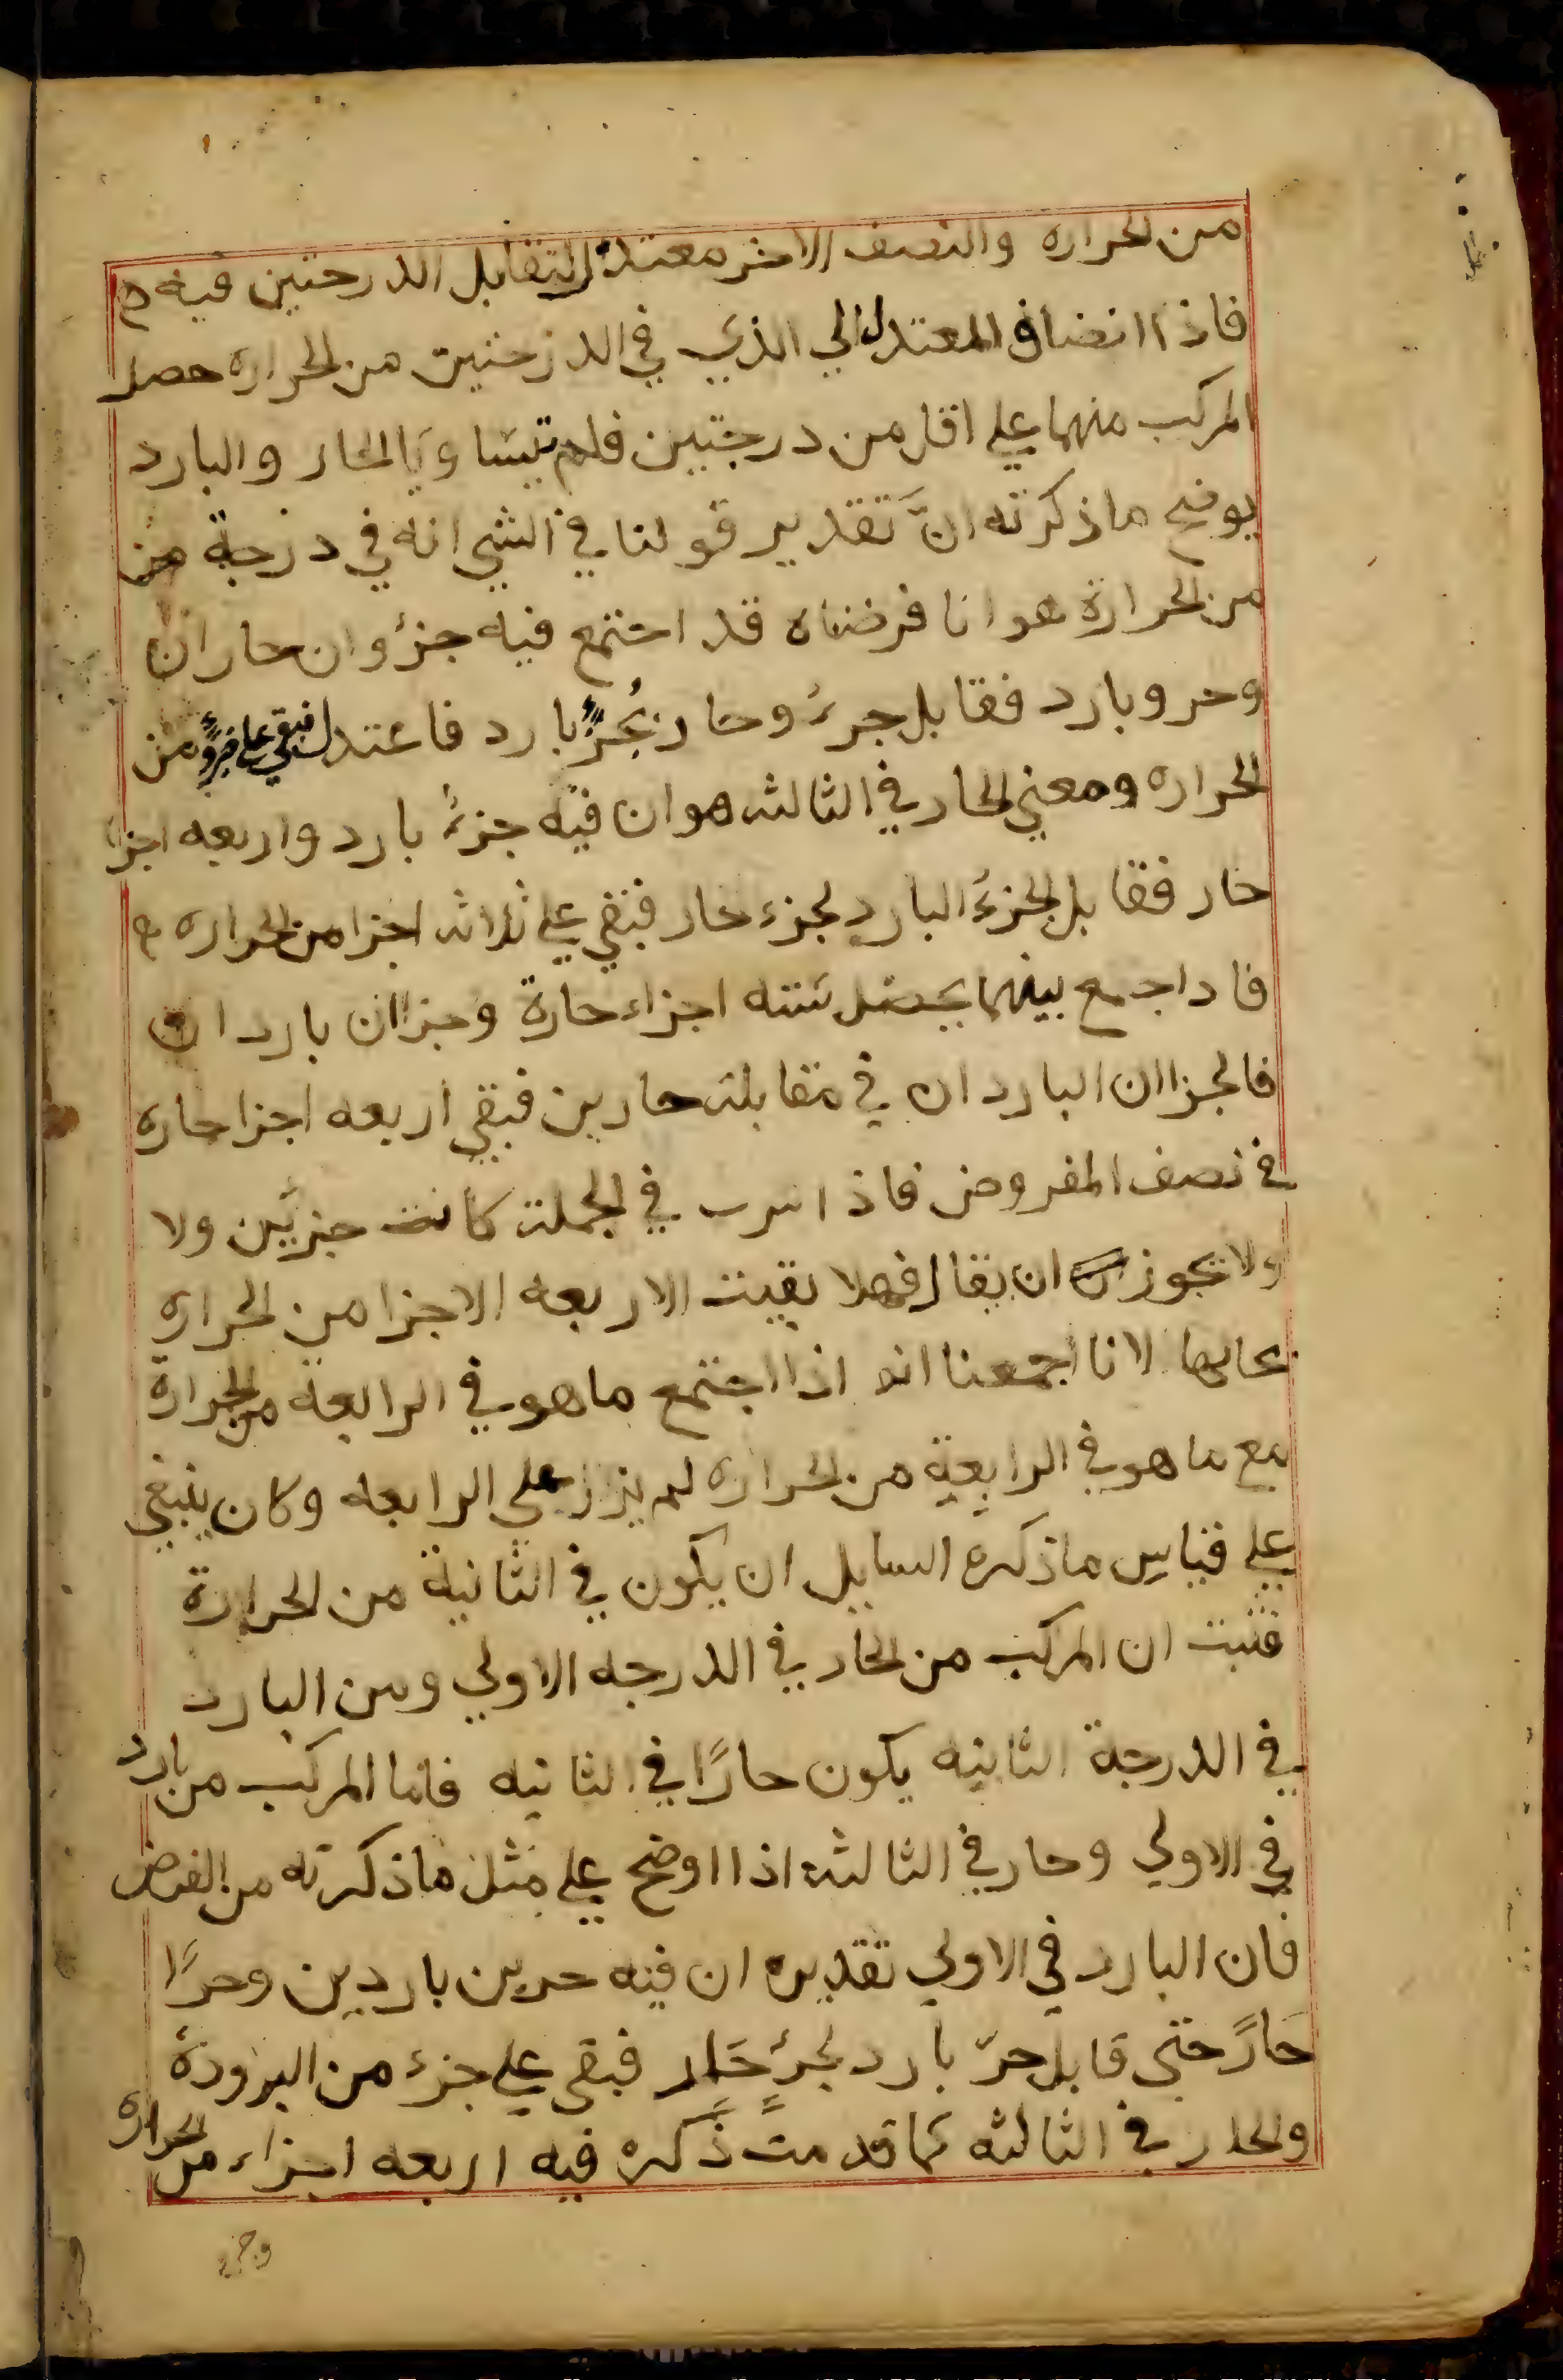 من الحراره والنصف الاخر معتدل لتقابل الدرجتين فيه
فاذا انضاف المعتدل الي الذي في الدرجتين من الحراره حصل
المركب منهما علي اقل من درجتين فلم يتساويا الحار والبارد
يوضح ما ذكرته انَّ تقدير قولنا في الشي انه في درجة من
من الحرارة هو انا فرضناه قد اجتمع فيه جزؤان حاران
وحر وبارد فقابل جرءُ وحار بجُزءٍ بارد فاعتدل فبقي علي جزوٍ من
الحراره ومعني الحار في الثالثه هو ان فيه جزءُ بارد واربعه اجزا
حار فقابل الجزءُ البارد لجزء حار فبقي علي ثلاثه اجزا من الحراره
فاداجمع بينهما يحصل سته اجزاء حارة وجزاان باردان
فالجزاان الباردان في مقابلة حارين فبقي اربعه اجزا حاره
في نصف المفروض فاذا في الجملة كانت جزئين ولا
ولا يجوز ان يقال فهلا بقيت الاربعه الاجزا من الحراره
بحالها لانا اجمعنا انه اذا اجتمع ما هو في الرابعة من الحرارة
مع ما هو في الرابعة من الحراره لم يزد علي الرابعه وكان ينبغي
علي قياس ما ذكره السايل ان يكون في الثانية من الحرارة
فثبت ان المركب من الحار في الدرجه الاولي ومن البارد
في الدرجة الثانيه يكون حارًا في الثانيه فاما المركب من بارد
في الاولي وحار في الثالثه اذا اوضح علي مثل ما ذكرته من الفرض
فان البارد في الاولي تقديره ان فيه حرين باردين وحرًا
حَارً حتي قابل حرّ بارد لجرءٍ حَار فبقي علي جزء من البرودة
والحار في الثالثه كما قدمت ذكره فيه اربعه اجزاء من الحراره
وجزء